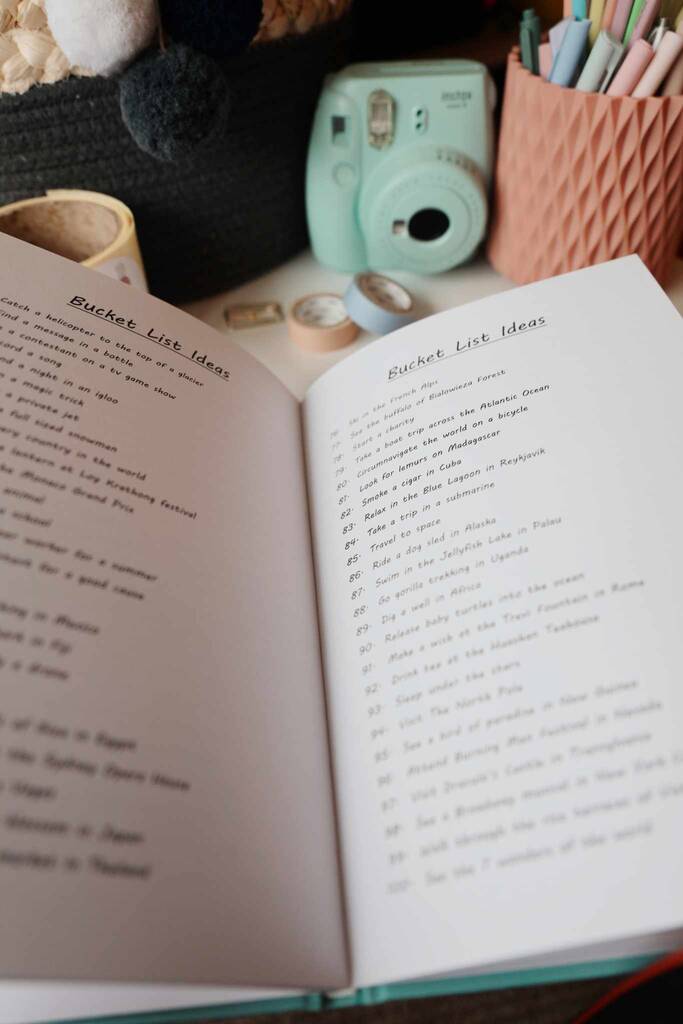 instax
Bucket List Ideas
Catch a helicopter to the top of a glacier
Find a message in a bottle
a contestant on a tv game show
a song
a night in an igloo
a magic trick
a private jet
full sized snowman
country in the world
lantern at Loy Krathong festival
the Monaco Grand Prix
animal
school
worker for a summer
for a good cause
in Mexico
in Fiji
a drone
of Giza in Egypt
the Sydney Opera House
blossom in Japan
market in Thailand
Bucket List Ideas
76. Ski in the French Alps
77. See the buffalo of Bialowieza Forest
78. Start a charity
79. Take a boat trip across the Atlantic Ocean
80. Circumnavigate the world on a bicycle
81. Look for lemurs on Madagascar
82. Smoke a cigar in Cuba
83. Relax in the Blue Lagoon in Reykjavik
84. Take a trip in a submarine
85. Travel to space
86. Ride a dog sled in Alaska
87. Swim in the Jellyfish Lake in Palau
88. Go gorilla trekking in Uganda
89. Dig a well in Africa
90. Release baby turtles into the ocean
91. Make a wish at the Trevi Fountain in Rome
92. Drink tea at the Huashan Teahouse
93. Sleep under the stars
94. Visit The North Pole
95. See a bird of paradise in New Guinea
96. Attend Burning Man Festival in Nevada
97. Visit Dracula's Castle in Transylvania
98. See a Broadway musical in New York
99. Walk through the rice terraces of
100. See the 7 wonders of the world